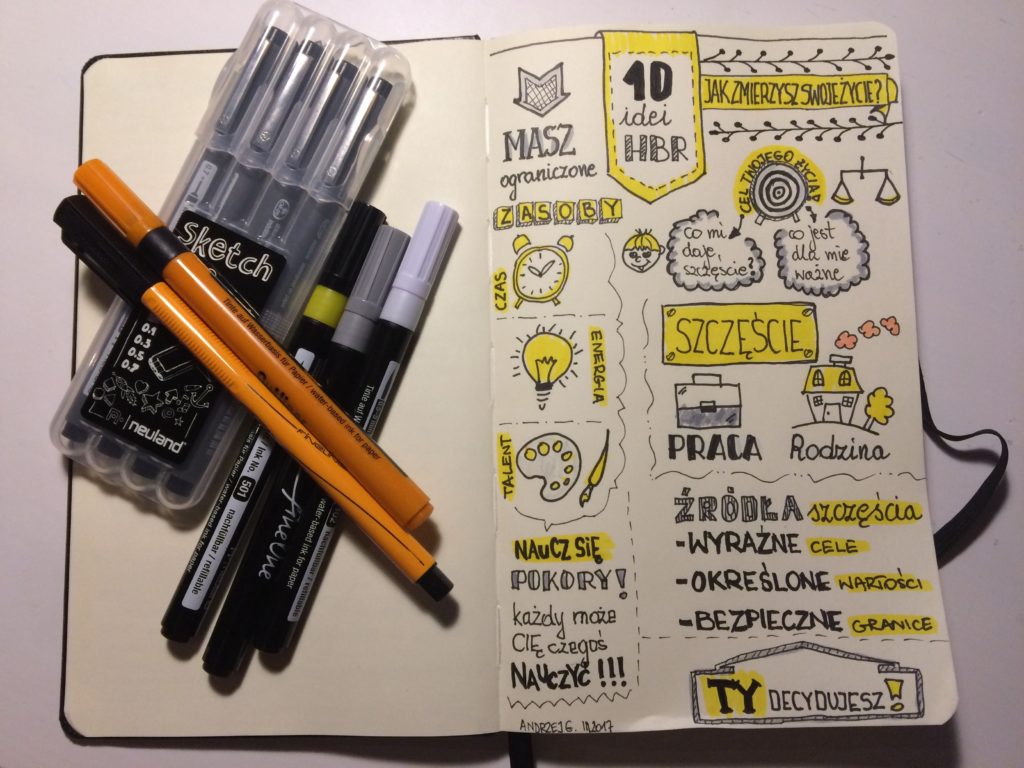 10
idei
HBR
JAK ZMIERZYSZ SWOJE ŻYCIE?
MASZ
ograniczone
ZASOBY
CZAS
ENERGIA
TALENT
NAUCZ SIĘ
POKORY!
każdy może
CIĘ czegoś
NAUCZYĆ!!!
ANDRZEJ G. III.2017
CEL TWOJEGO ŻYCIA?
co mi
daje,
szczęście?
co jest
dla mnie
ważne
SZCZĘŚCIE
PRACA
Rodzina
ŹRÓDŁA szczęścia
-WYRAŹNE CELE
-OKREŚLONE WARTOŚCI
-BEZPIECZNE GRANICE
TY DECYDUJESZ!
sketch
0.1
0.3
0.5
0.7
neuland
Tinte auf Wasserbasis für Papier / water-based ink for paper
FINELINE
Ink No. 501
nachfüllbar / refillable
FineOne
water-based ink for paper